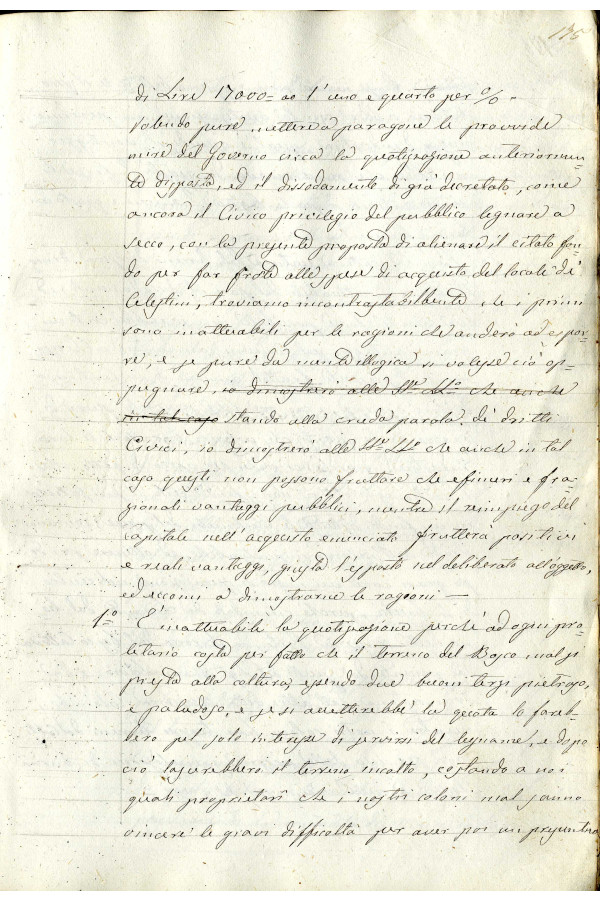 175
di Lire 17000= ao l'uno e quarto per %=
Volendo pure mettere a paragone le provvide
mire del Governo circa la quotizzazione anteriormen
te disposta, ed il dissodamento di già decretato, come
ancora il Civico privilegio del pubblico legnare a
secco, con la presente proposta di alienare il citato fon
do per far fronte alle spese di acquisto del locale de'
Celestini, troviamo incontrastabilmente che i primi
sono inattuabili per le ragioni che anderò ad espor
re, e se pure da mente illogica si volesse ciò op
pugnare, io dimostrerò alle SS.e LL.o che anche
in tal caso stando alla cruda parola de' dritti
Civici, io dimostrerò alle SS.e LL.o che anche in tal
caso questi non possono fruttare che efimeri e fra
zionali vantaggi pubblici, mentre il reimpiego del
capitale nell'acquisto enunciato frutterà positivi
e reali vantaggi, giusta l'esposto nel deliberato all'oggetto,
ed eccomi a dimostrarne le ragioni —
1.o È inattuabile la quotizzazione perchè ad ogni pro
letario costa per fatto che il terreno del Bosco mal si
presta alla coltura, essendo due buoni terzi pietroso,
e paludoso, e se si accetterebbe la quota lo fareb
bero pel solo interesse di servirsi del legname, e dopo
ciò lascerebbero il terreno incolto, costando a noi
quali proprietari che i nostri coloni mal sanno
vincere le gravi difficoltà per aver poi un